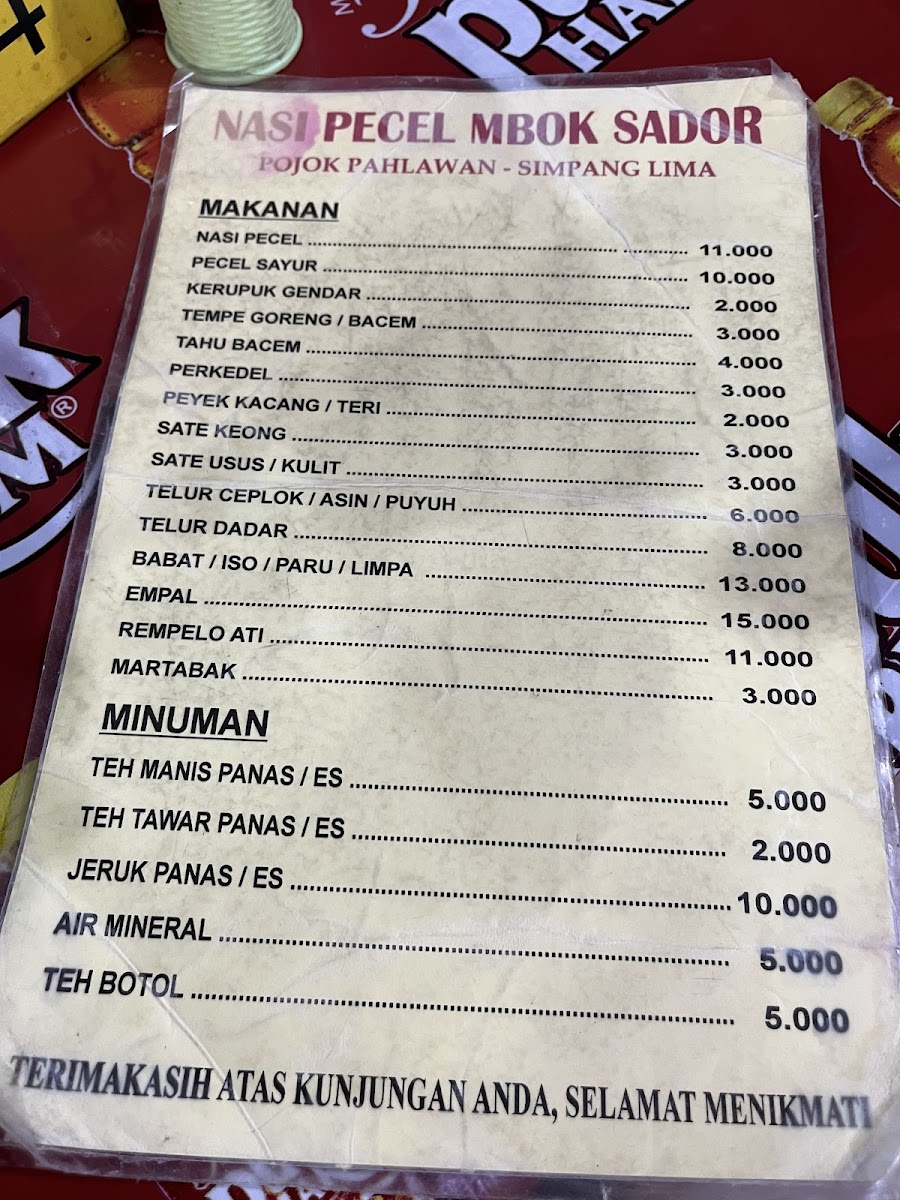 NASI PECEL MBOK SADOR
POJOK PAHLAWAN - SIMPANG LIMA
MAKANAN
NASI PECEL 11.000
PECEL SAYUR 10.000
KERUPUK GENDAR 2.000
TEMPE GORENG / BACEM 3.000
TAHU BACEM 4.000
PERKEDEL 3.000
PEYEK KACANG / TERI 2.000
SATE KEONG 3.000
SATE USUS / KULIT 3.000
TELUR CEPLOK / ASIN / PUYUH 6.000
TELUR DADAR 8.000
BABAT / ISO / PARU / LIMPA 13.000
EMPAL 15.000
REMPELO ATI 11.000
MARTABAK 3.000
MINUMAN
TEH MANIS PANAS / ES 5.000
TEH TAWAR PANAS / ES 2.000
JERUK PANAS / ES 10.000
AIR MINERAL 5.000
TEH BOTOL 5.000
TERIMAKASIH ATAS KUNJUNGAN ANDA, SELAMAT MENIKMATI